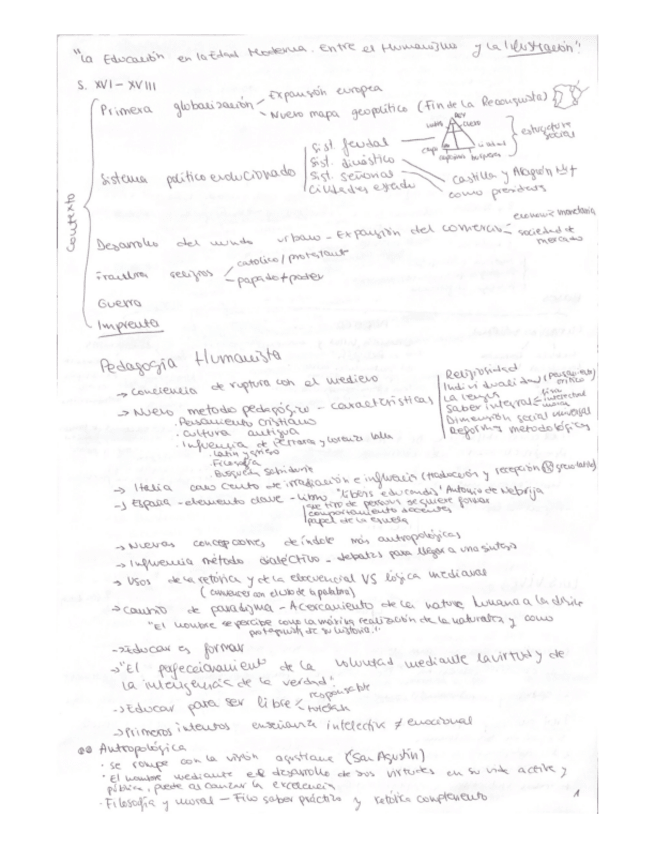 "La Educación en la Edad Moderna. Entre el Humanismo y la Ilustración".
S. XVI - XVIII
Contexto
Primera globalización
Expansión europea
Nuevo mapa geopolítico (Fin de la Reconquista)
Sistema político evolucionado
Sist. feudal
Sist. dinástico
Sist. señorial
Ciudades estado
REY
clero
estructura social
Castilla y Aragón
como
Desarrollo del mundo urbano - Expansión del comercio
economía monetaria
sociedad de mercado
Fractura religiosa
católico/protestante
papado + poder
Guerra
Imprenta
Pedagogía Humanista
→ Conciencia de ruptura con el medievo
→ Nuevo método pedagógico - características
Religiosidad
Individualidad
crítico
La lengua
Saber integral
física
intelectual
moral
Dimensión social universal
Reforma metodológica
· Pensamiento cristiano
· Cultura antigua
· Influencia de
· Latín y griego
· Filosofía
· Búsqueda sabiduría
→ Italia como centro de irradiación e influencia (traducción y recepción
→ España - elemento clave - Libro "libris educandis" Antonio de Nebrija
que tipo de persona se quiere formar
comportamiento docentes
papel de la escuela
→ Nuevas concepciones de índole más antropológicas
→ Influencia método dialéctico - debates para llegar a una síntesis
→ Usos de la retórica y de la elocuencia VS lógica medieval
(convencer con el uso de la palabra)
→ Cambio de paradigma - Acercamiento de la natura humana a la
"El hombre se percibe como la máxima realización de la naturaleza y como
protagonista de su historia."
→ Educar es formar
→ "El perfeccionamiento de la voluntad mediante la virtud y de
la inteligencia de la verdad".
→ Educar para ser libre
responsable
→ Primeros intentos enseñanza intelectiva ≠ emocional
Antropológica
· Se rompe con la visión agustiniana (San Agustín)
· "El hombre mediante el desarrollo de sus virtudes en su vida activa y
pública, puede alcanzar la excelencia
· Filosofía y moral - Filo saber práctico y retórica complemento
1